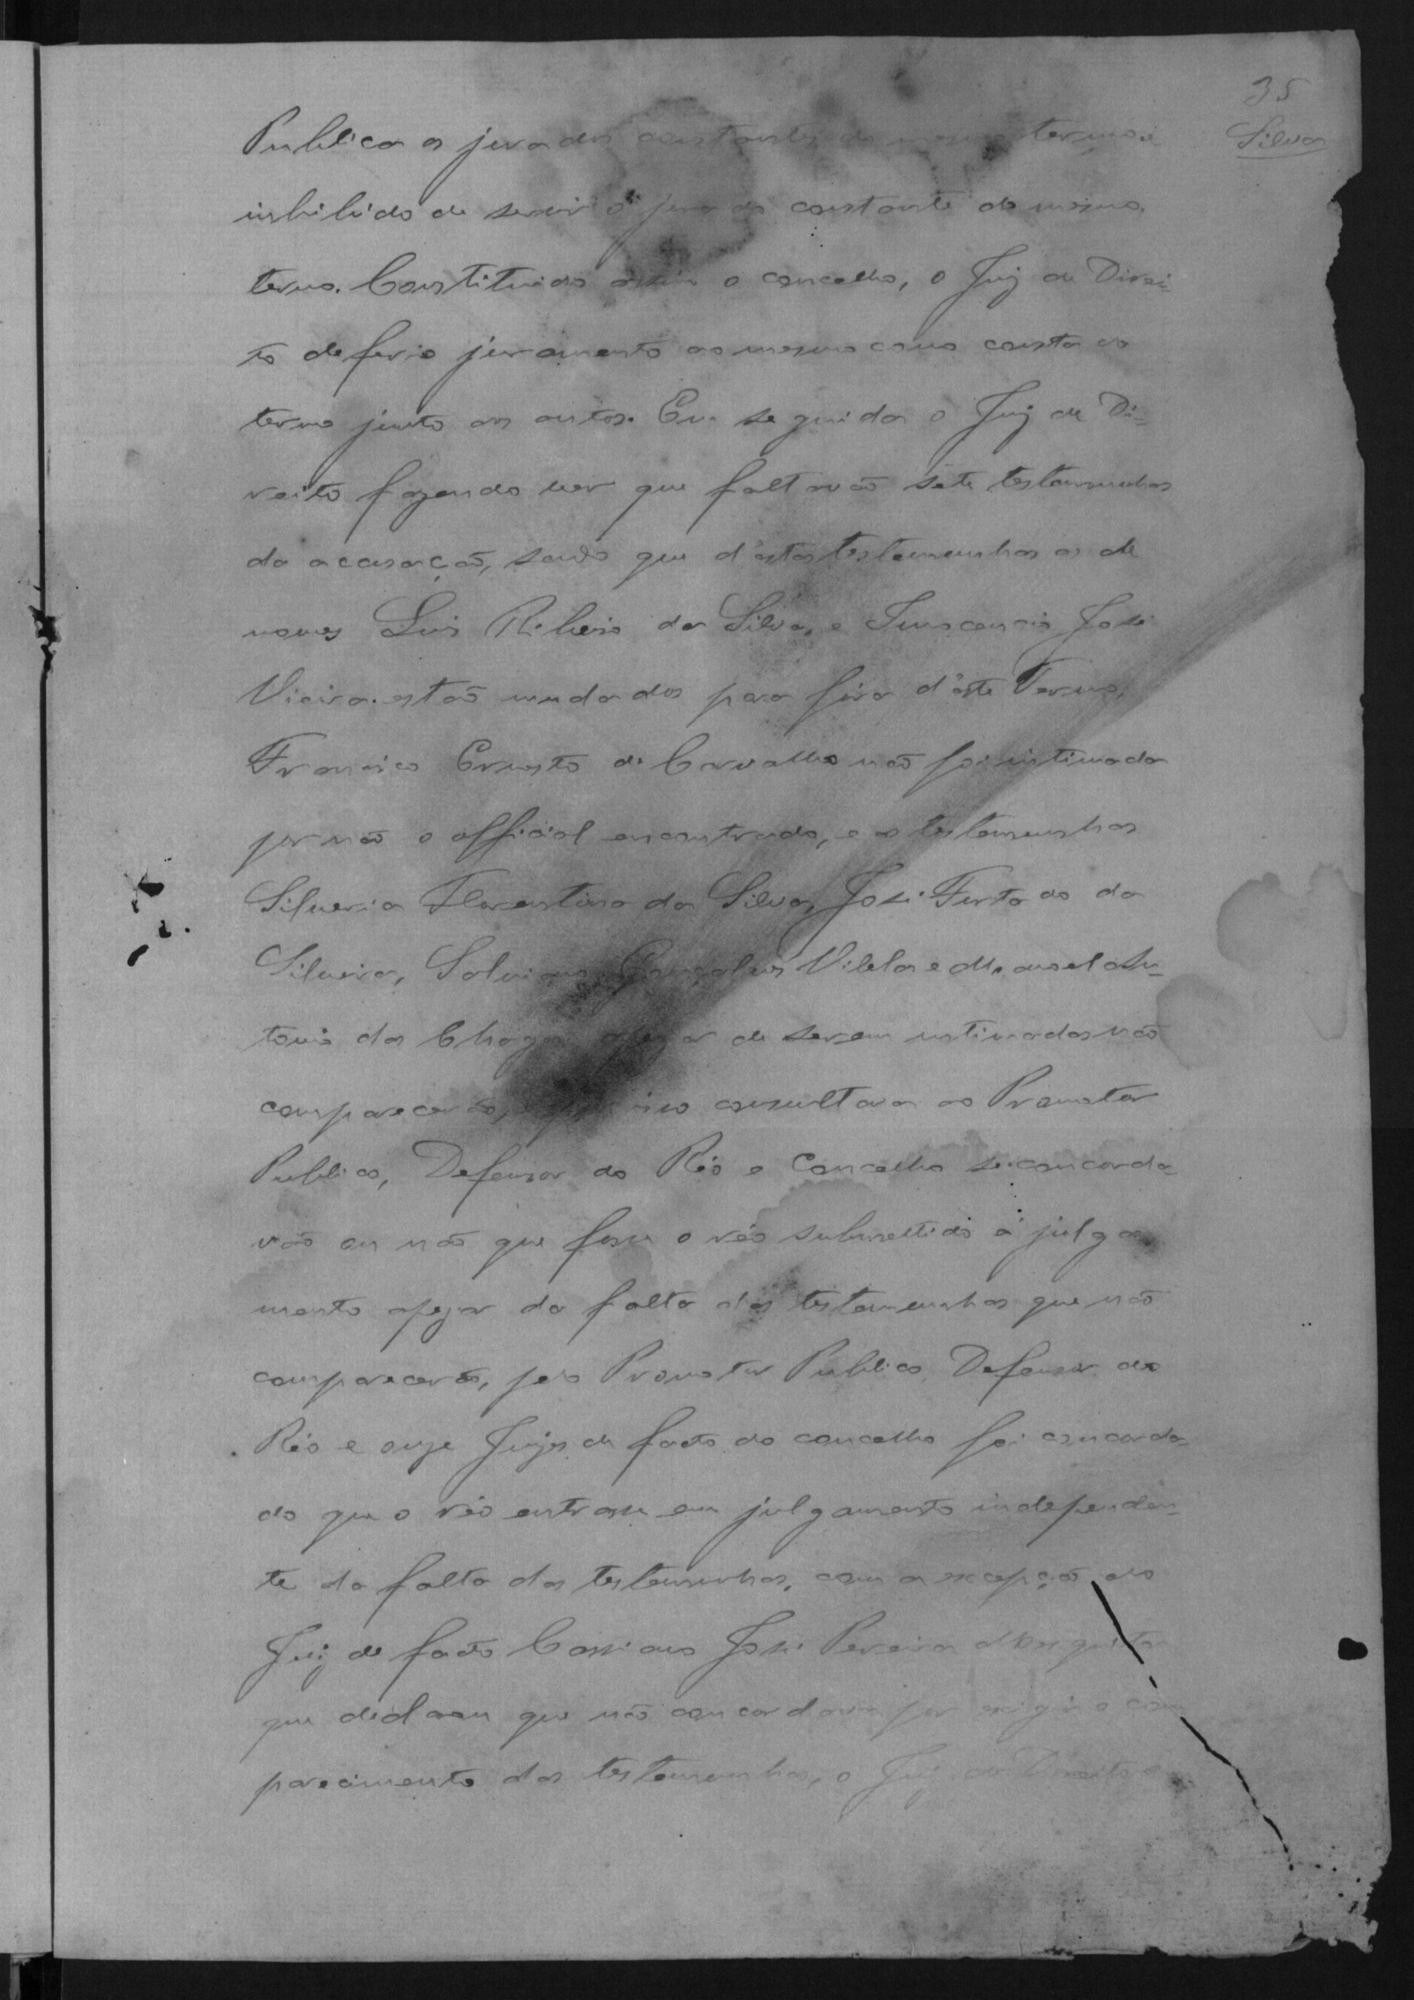 35
Silva
Publica os jurados constantes do mesmo termo e
inhibido de servir o jurado constante do mesmo
termo. Constituido assim o concelho, o Juiz de Direi-
to deferio juramento ao mesmo como consta do
termo junto aos autos. Em seguida o Juiz de Di-
reito fazendo ver que faltavão sete testemunhas
da accusação, sendo que d'estas testemunhas as de
nomes Luis Ribeiro da Silva, e Innocencio José
Vieira estão mudados para fóra d'este Termo,
Francisco Ernesto de Carvalho não foi intimada
por não o official encontrado, e as testemunhas
Silveria Florentina da Silva, José Furtado da
Silveira, Salviano Gonçalves Vilela e Manoel An-
tonio das Chagas apezar de serem intimadas não
comparecerão, e por isso consultava ao Promotor
Publico, Defensor do Réo e Concelho se concorda-
vão ou não que fosse o réo submettido á julga
mento apezar da falta das testemunhas que não
comparecerão, pelo Promotor Publico, Defensor do
Réo e onze Juizes de facto do concelho foi concorda-
do que o réo entrasse em julgamento independen-
te da falta das testemunhas, com a excepção do
Juiz de facto Cassiano José Pereira
que declarou que não concordava por exigir o com
parecimento das testemunhas, o Juiz de Direito